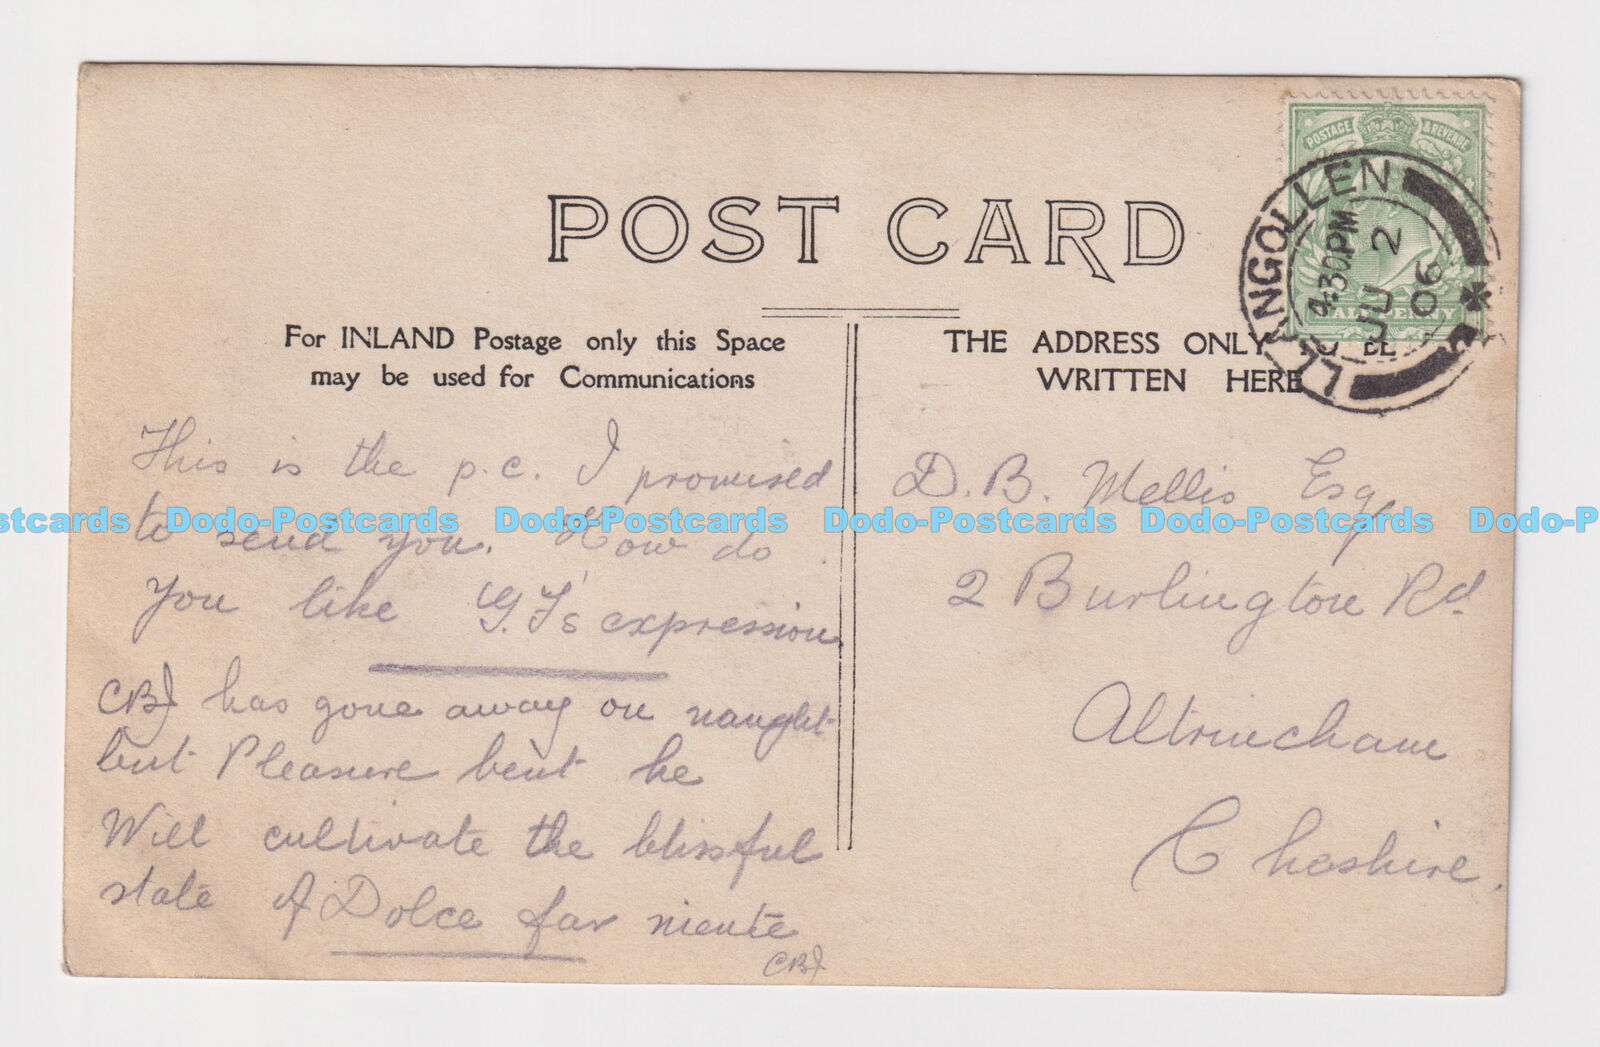 POST CARD
For INLAND Postage only this Space
may be used for Communications
This is the p.c. I promised
to send you. How do
you like G.F's expression
CBJ has gone away on naught
but Pleasure bent he
Will cultivate the blissful
state of Dolce far niente
CBJ
THE ADDRESS ONLY TO BE
WRITTEN HERE
D. B. Mellis Esq
2 Burlington Rd
Altrincham
Cheshire.
POSTAGE & REVENUE
HALFPENNY
LLANGOLLEN
4.30 PM
JU 2
06
Dodo-Postcards Dodo-Postcards Dodo-Postcards Dodo-Postcards